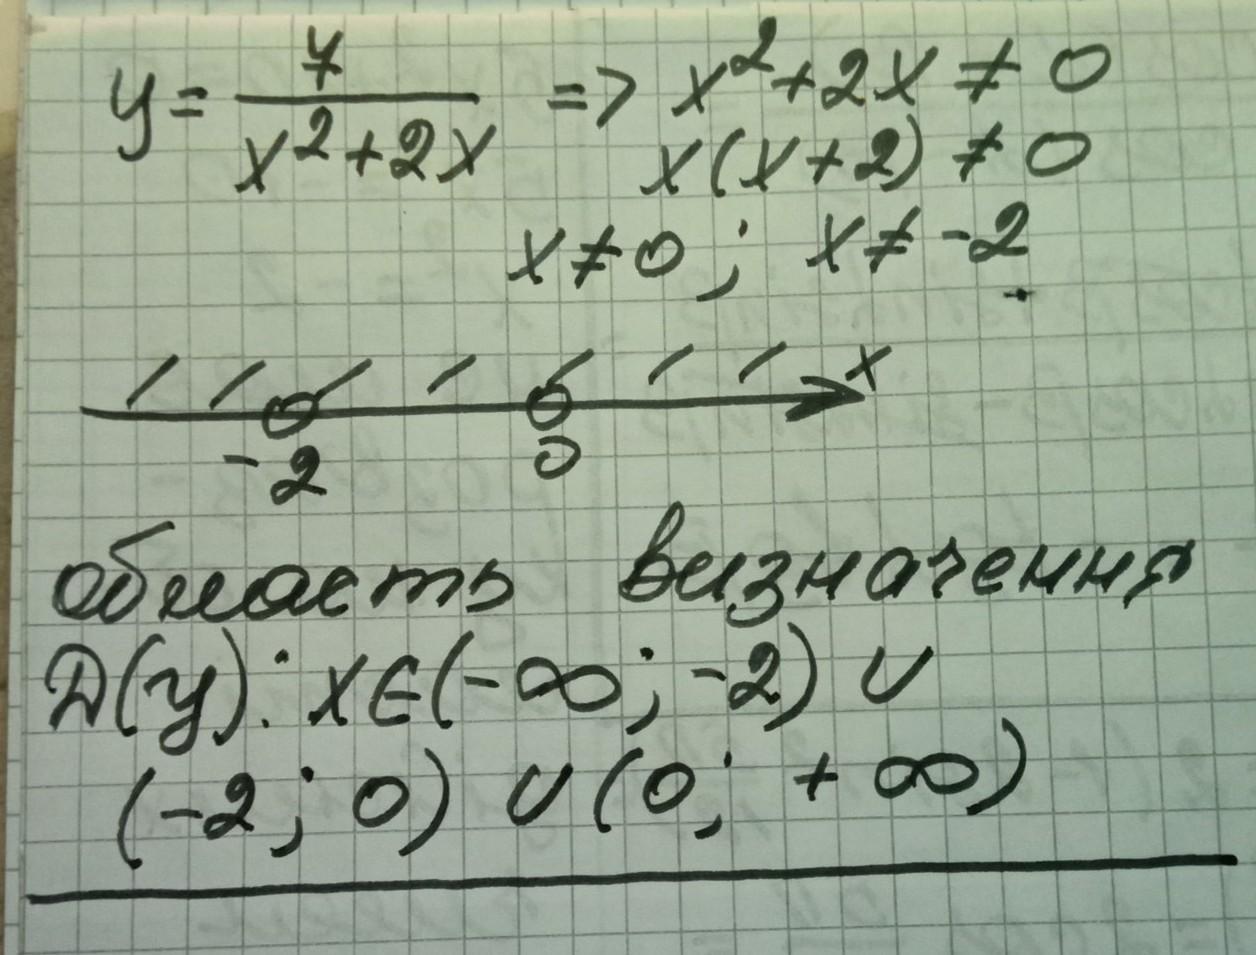 y = 7/(x² + 2x) => x² + 2x ≠ 0
x(x + 2) ≠ 0
x ≠ 0; x ≠ -2
x
-2 0
область визначення
D(y): x ∈ (-∞; -2) ∪
(-2; 0) ∪ (0; +∞)